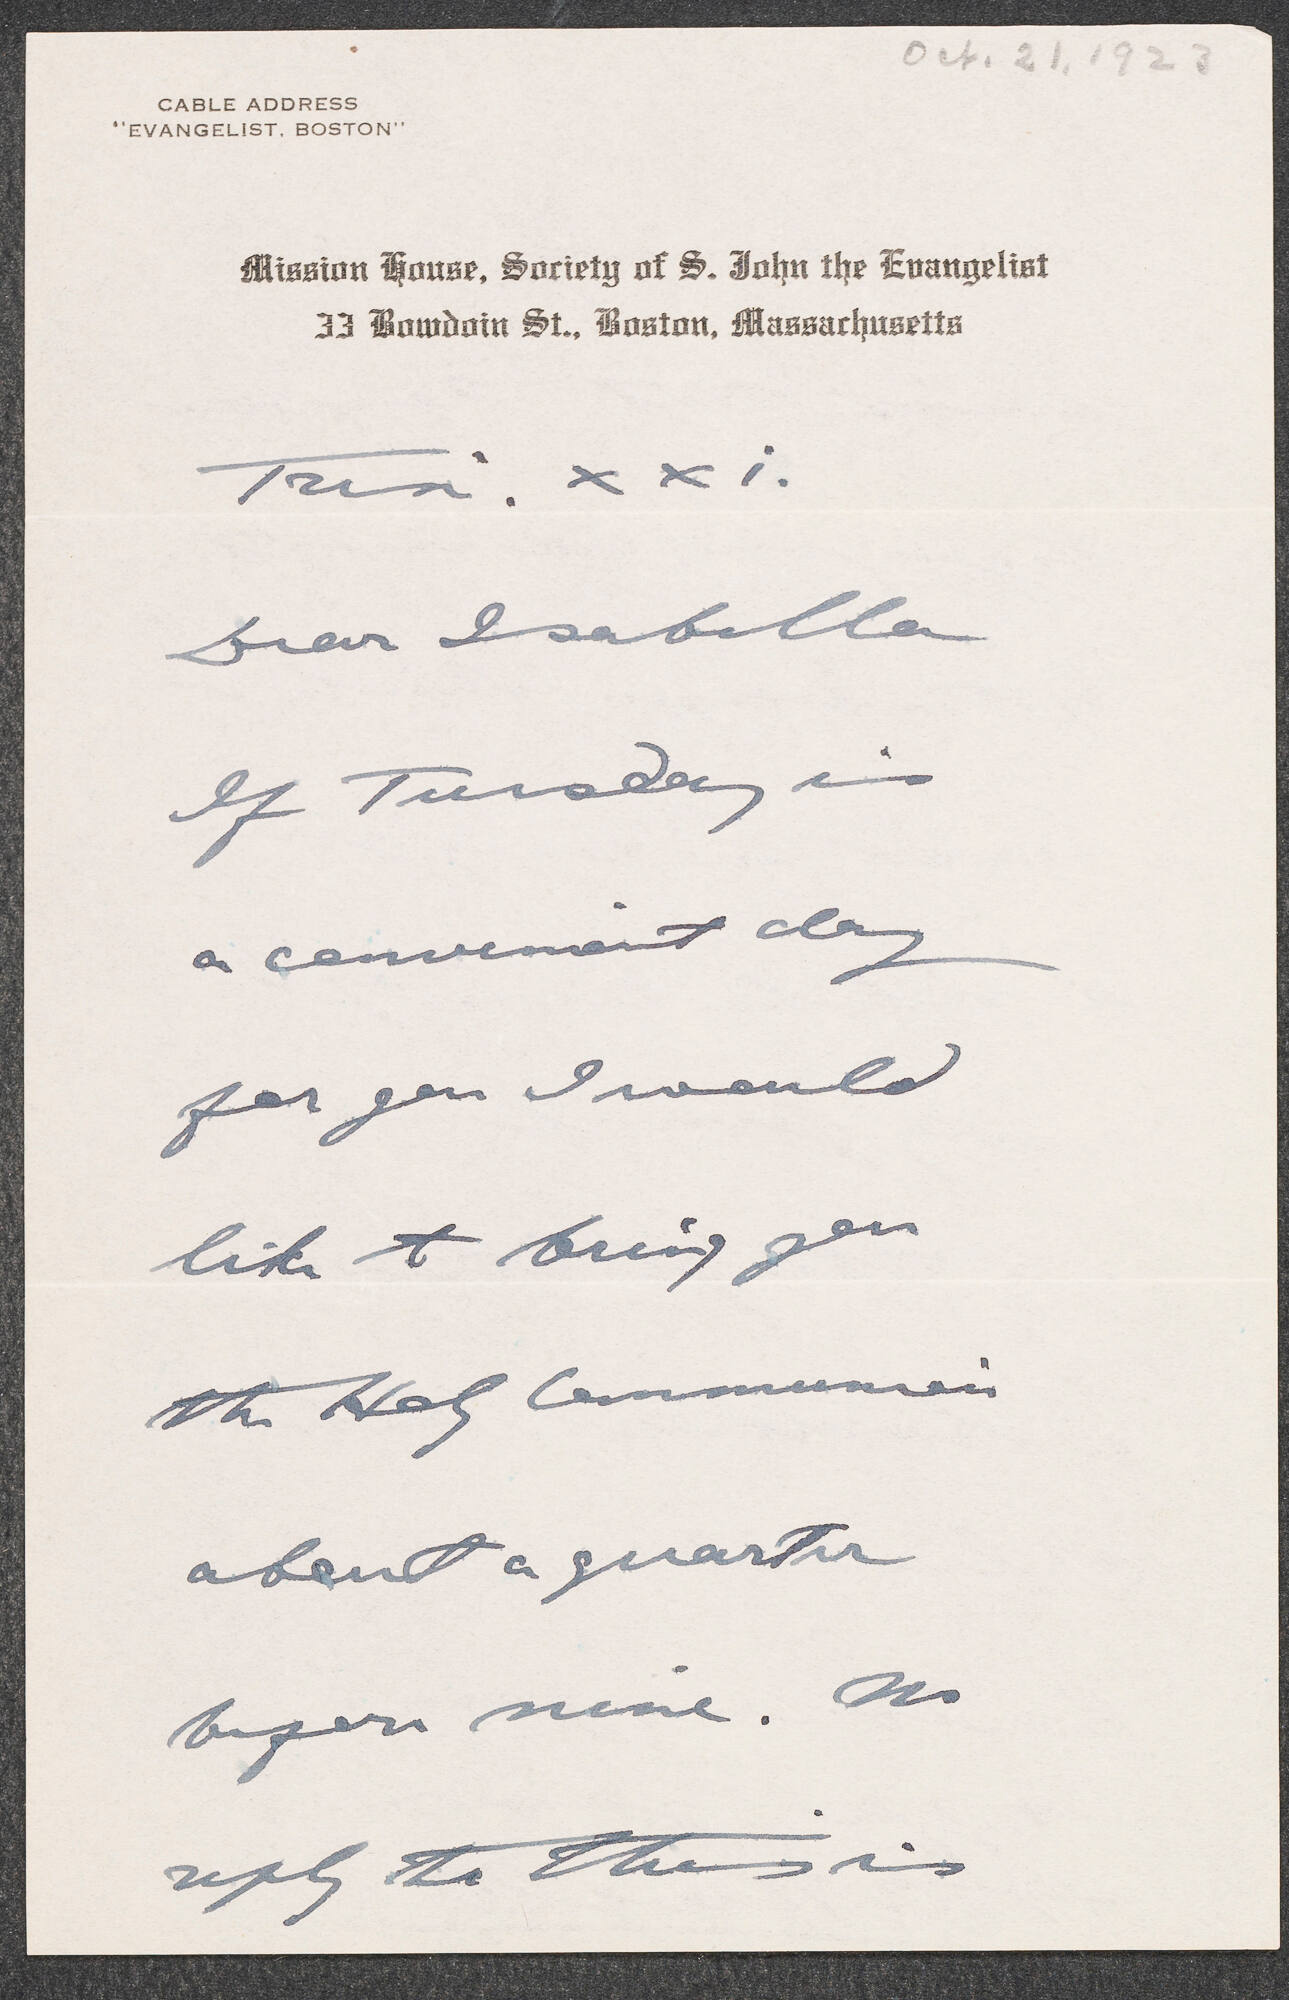 Oct. 21, 1923
CABLE ADDRESS
"EVANGELIST, BOSTON"
Mission House, Society of S. John the Evangelist
33 Bowdoin St., Boston, Massachusetts
Trin. xxi.
Dear Isabella
If Tuesday is
a convenient day
for you I would
like to bring you
the Holy Communion
about a quarter
before nine. No
reply to this is